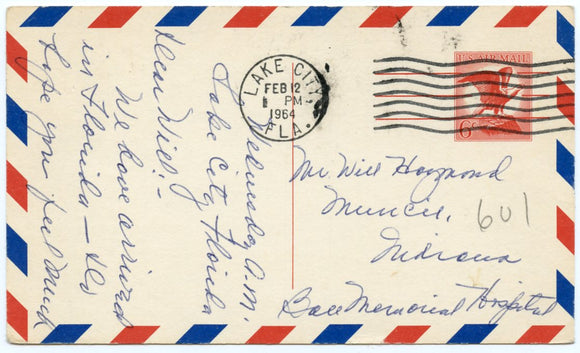 Wednesday A.M.
Lake City, Florida
Dear Will:-
We have arrived
in Florida -
hope you feel much
LAKE CITY,
FEB 12
PM
1964
FLA.
U.S. AIR MAIL
6c
Mr. Will Haymond
Muncie,
601
Indiana
Ball Memorial Hospital